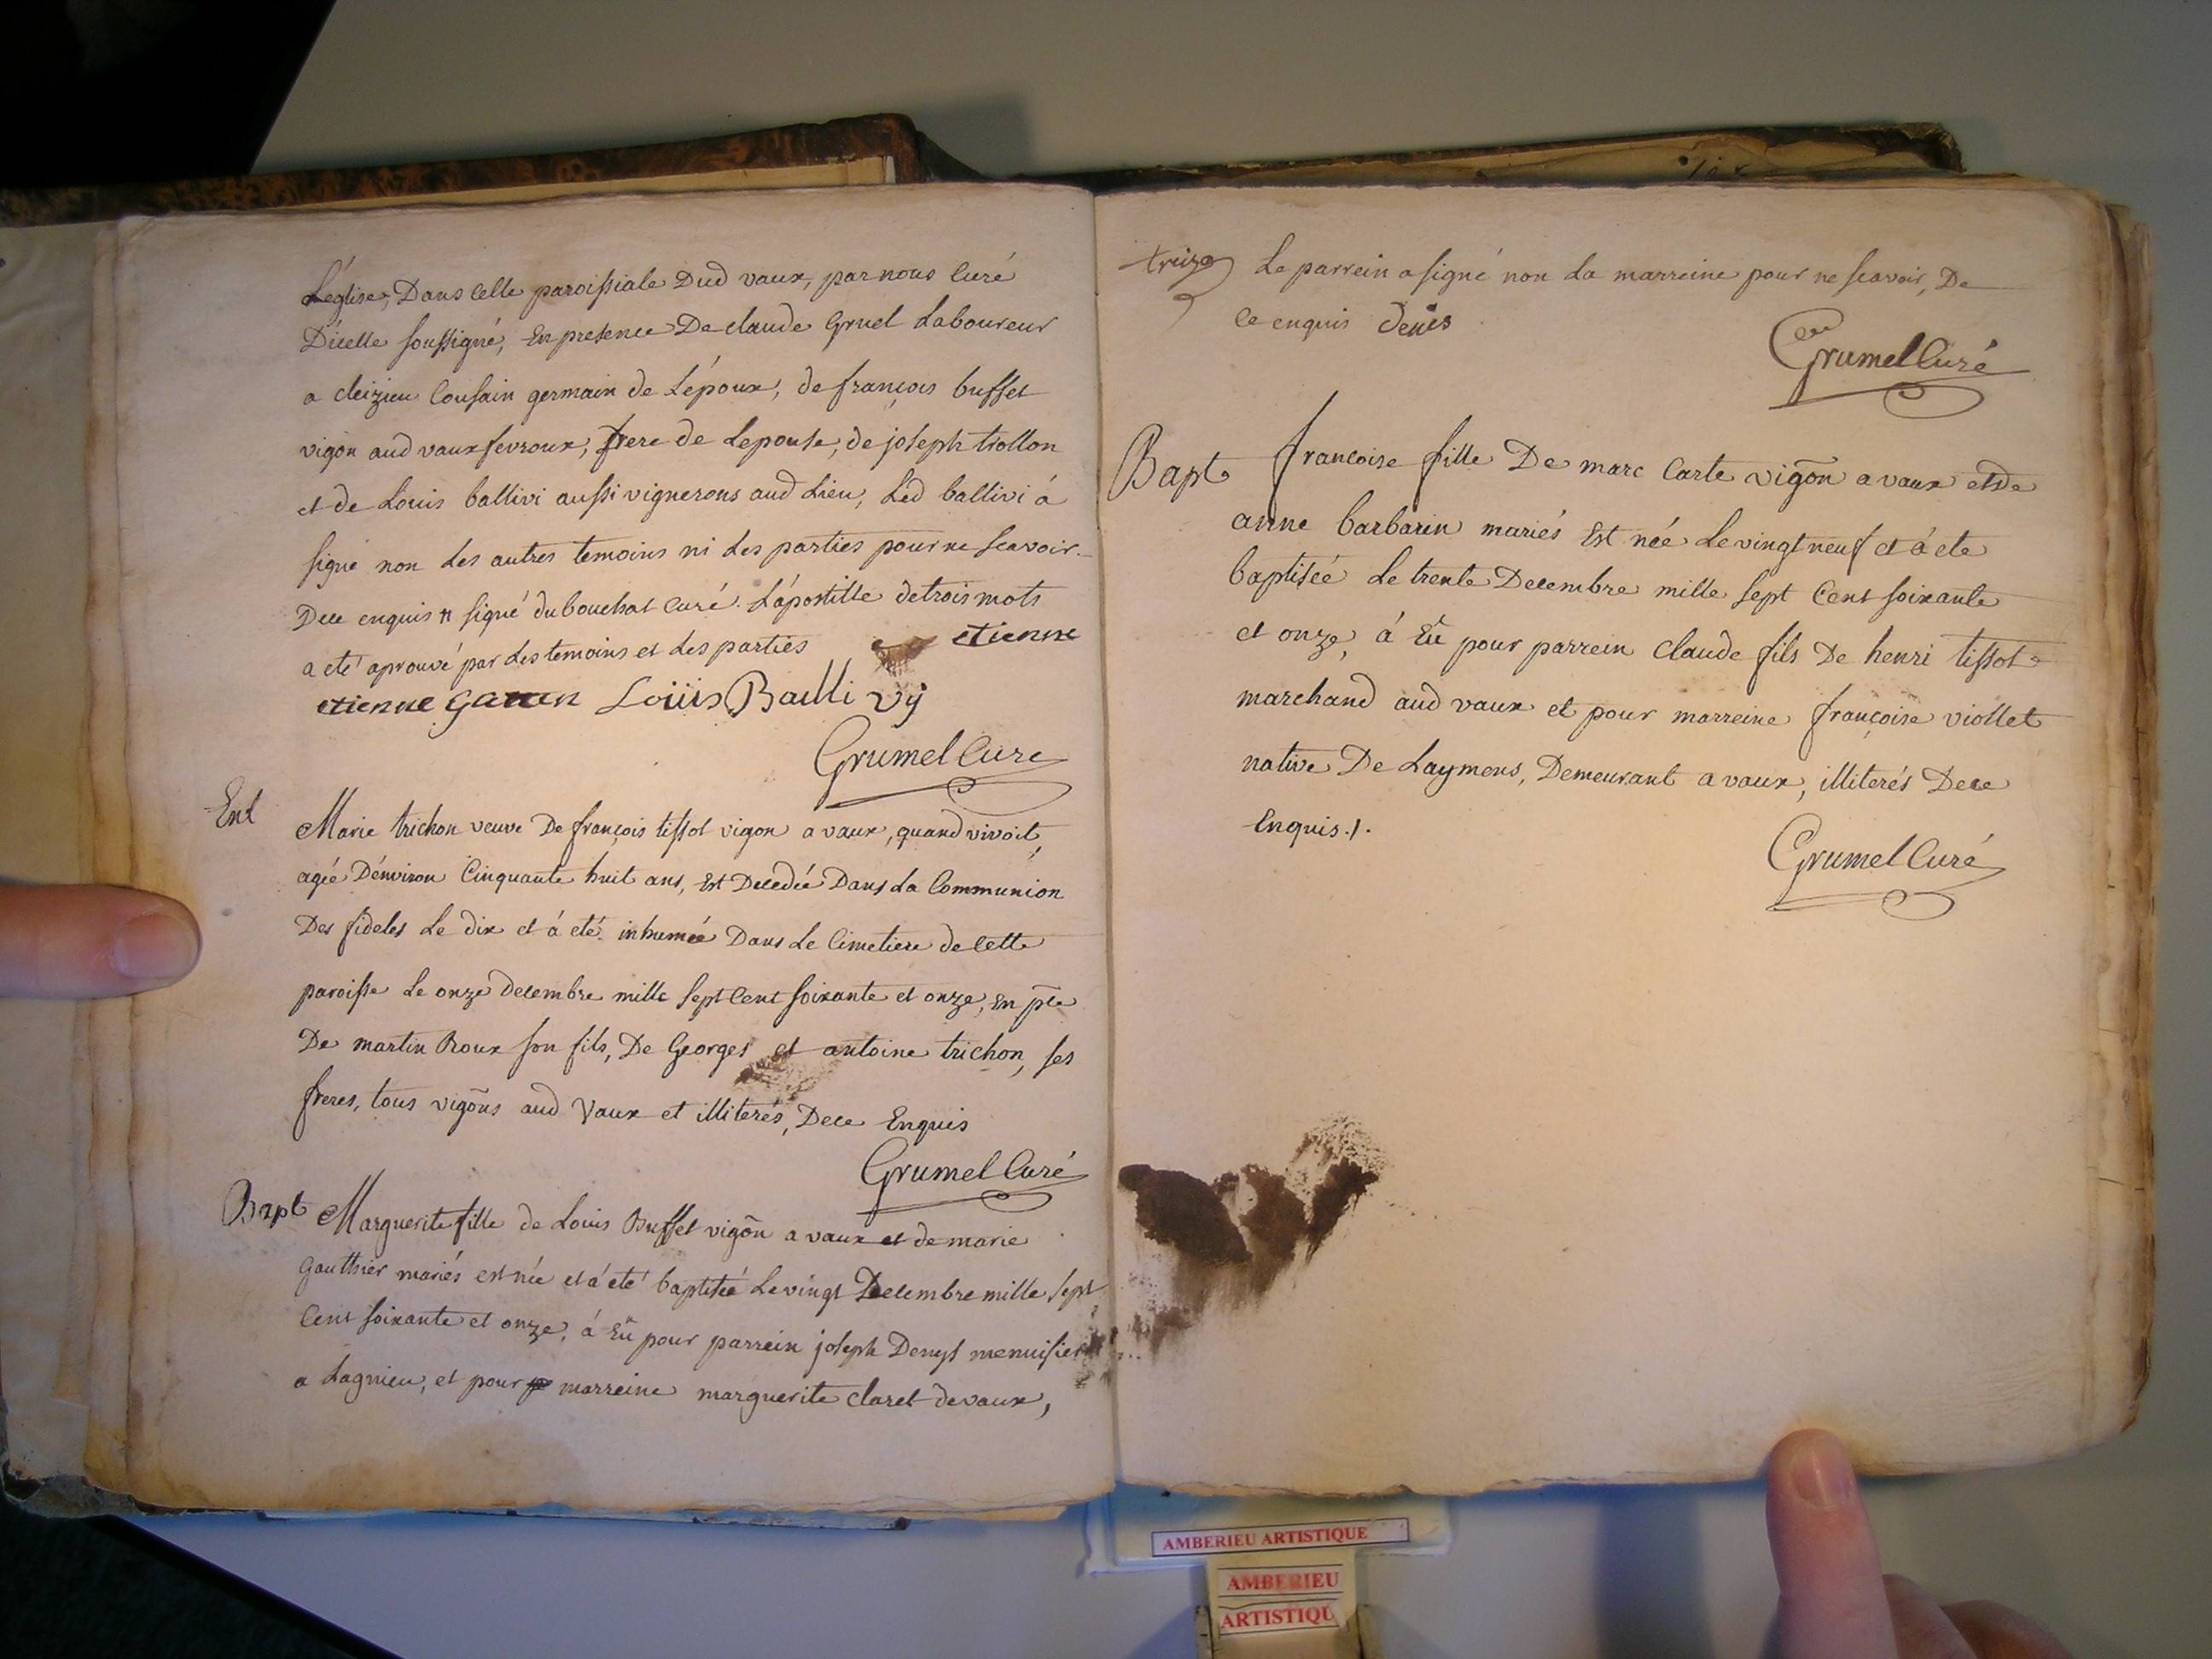 L'église, Dans celle paroissiale Dud vaux, par nous Curé
D'icelle soussigné, En presence De claude Gruel Laboureur
a cleizieu Cousain germain de L'époux, de françois buffet
vigōn aud vaux fevroux, frere de Lepouse, de joseph trollon
et de Louis ballivi aussi vignerons aud Lieu, Led ballivi á
signé non Les autres temoins ni Les parties pour ne scavoir
Dece enquis # signé dubouchat Curé. L'apostille de trois mots
a eté aprouvé par Les temoins et Les parties
etienne
etienne Loüis Baılli vÿ
Grumel Cure
Ent
Marie trichon veuve De françois tissot vigon a vaux, quand vivoit,
agée D'environ Cinquante huit ans, Est Decedée Dans La Communion
Des fideles Le dix et á eté inhumée Dans Le Cimetiere de cette
paroisse Le onze decembre mille sept Cent soixante et onze, En p̄ce
De martin Roux son fils, De Georges et antoine trichon, ses
freres, tous vigōns aud Vaux et illiterés, Dece Enquis
Grumel Curé
Bapt
Marguerite fille de Louis Buffet vigōn a vaux et de marie
Gauthier mariés est née et á eté baptisée Le vingt Decembre mille sept
Cent soixante et onze, á Eû pour parrein joseph Denys menuisier
a Lagnieu, et pour marreine marguerite claret de vaux,
treize
Le parrein a signé non La marreine pour ne scavoir, De
ce enquis Denis
Grumel Curé
Bapt
francoise fille De marc Carte vigōn a vaux et de
anne barbarin mariés Est née Le vingt neuf et á eté
baptisée Le trente Decembre mille sept Cent soixante
et onze, á Eû pour parrein Claude fils De henri tissot
marchand aud vaux et pour marreine françoise viollet
native De Laymens, Demeurant a vaux, illiterés Dece
Enquis ./.
Grumel Curé
AMBERIEU ARTISTIQUE
AMBERIEU
ARTISTIQU